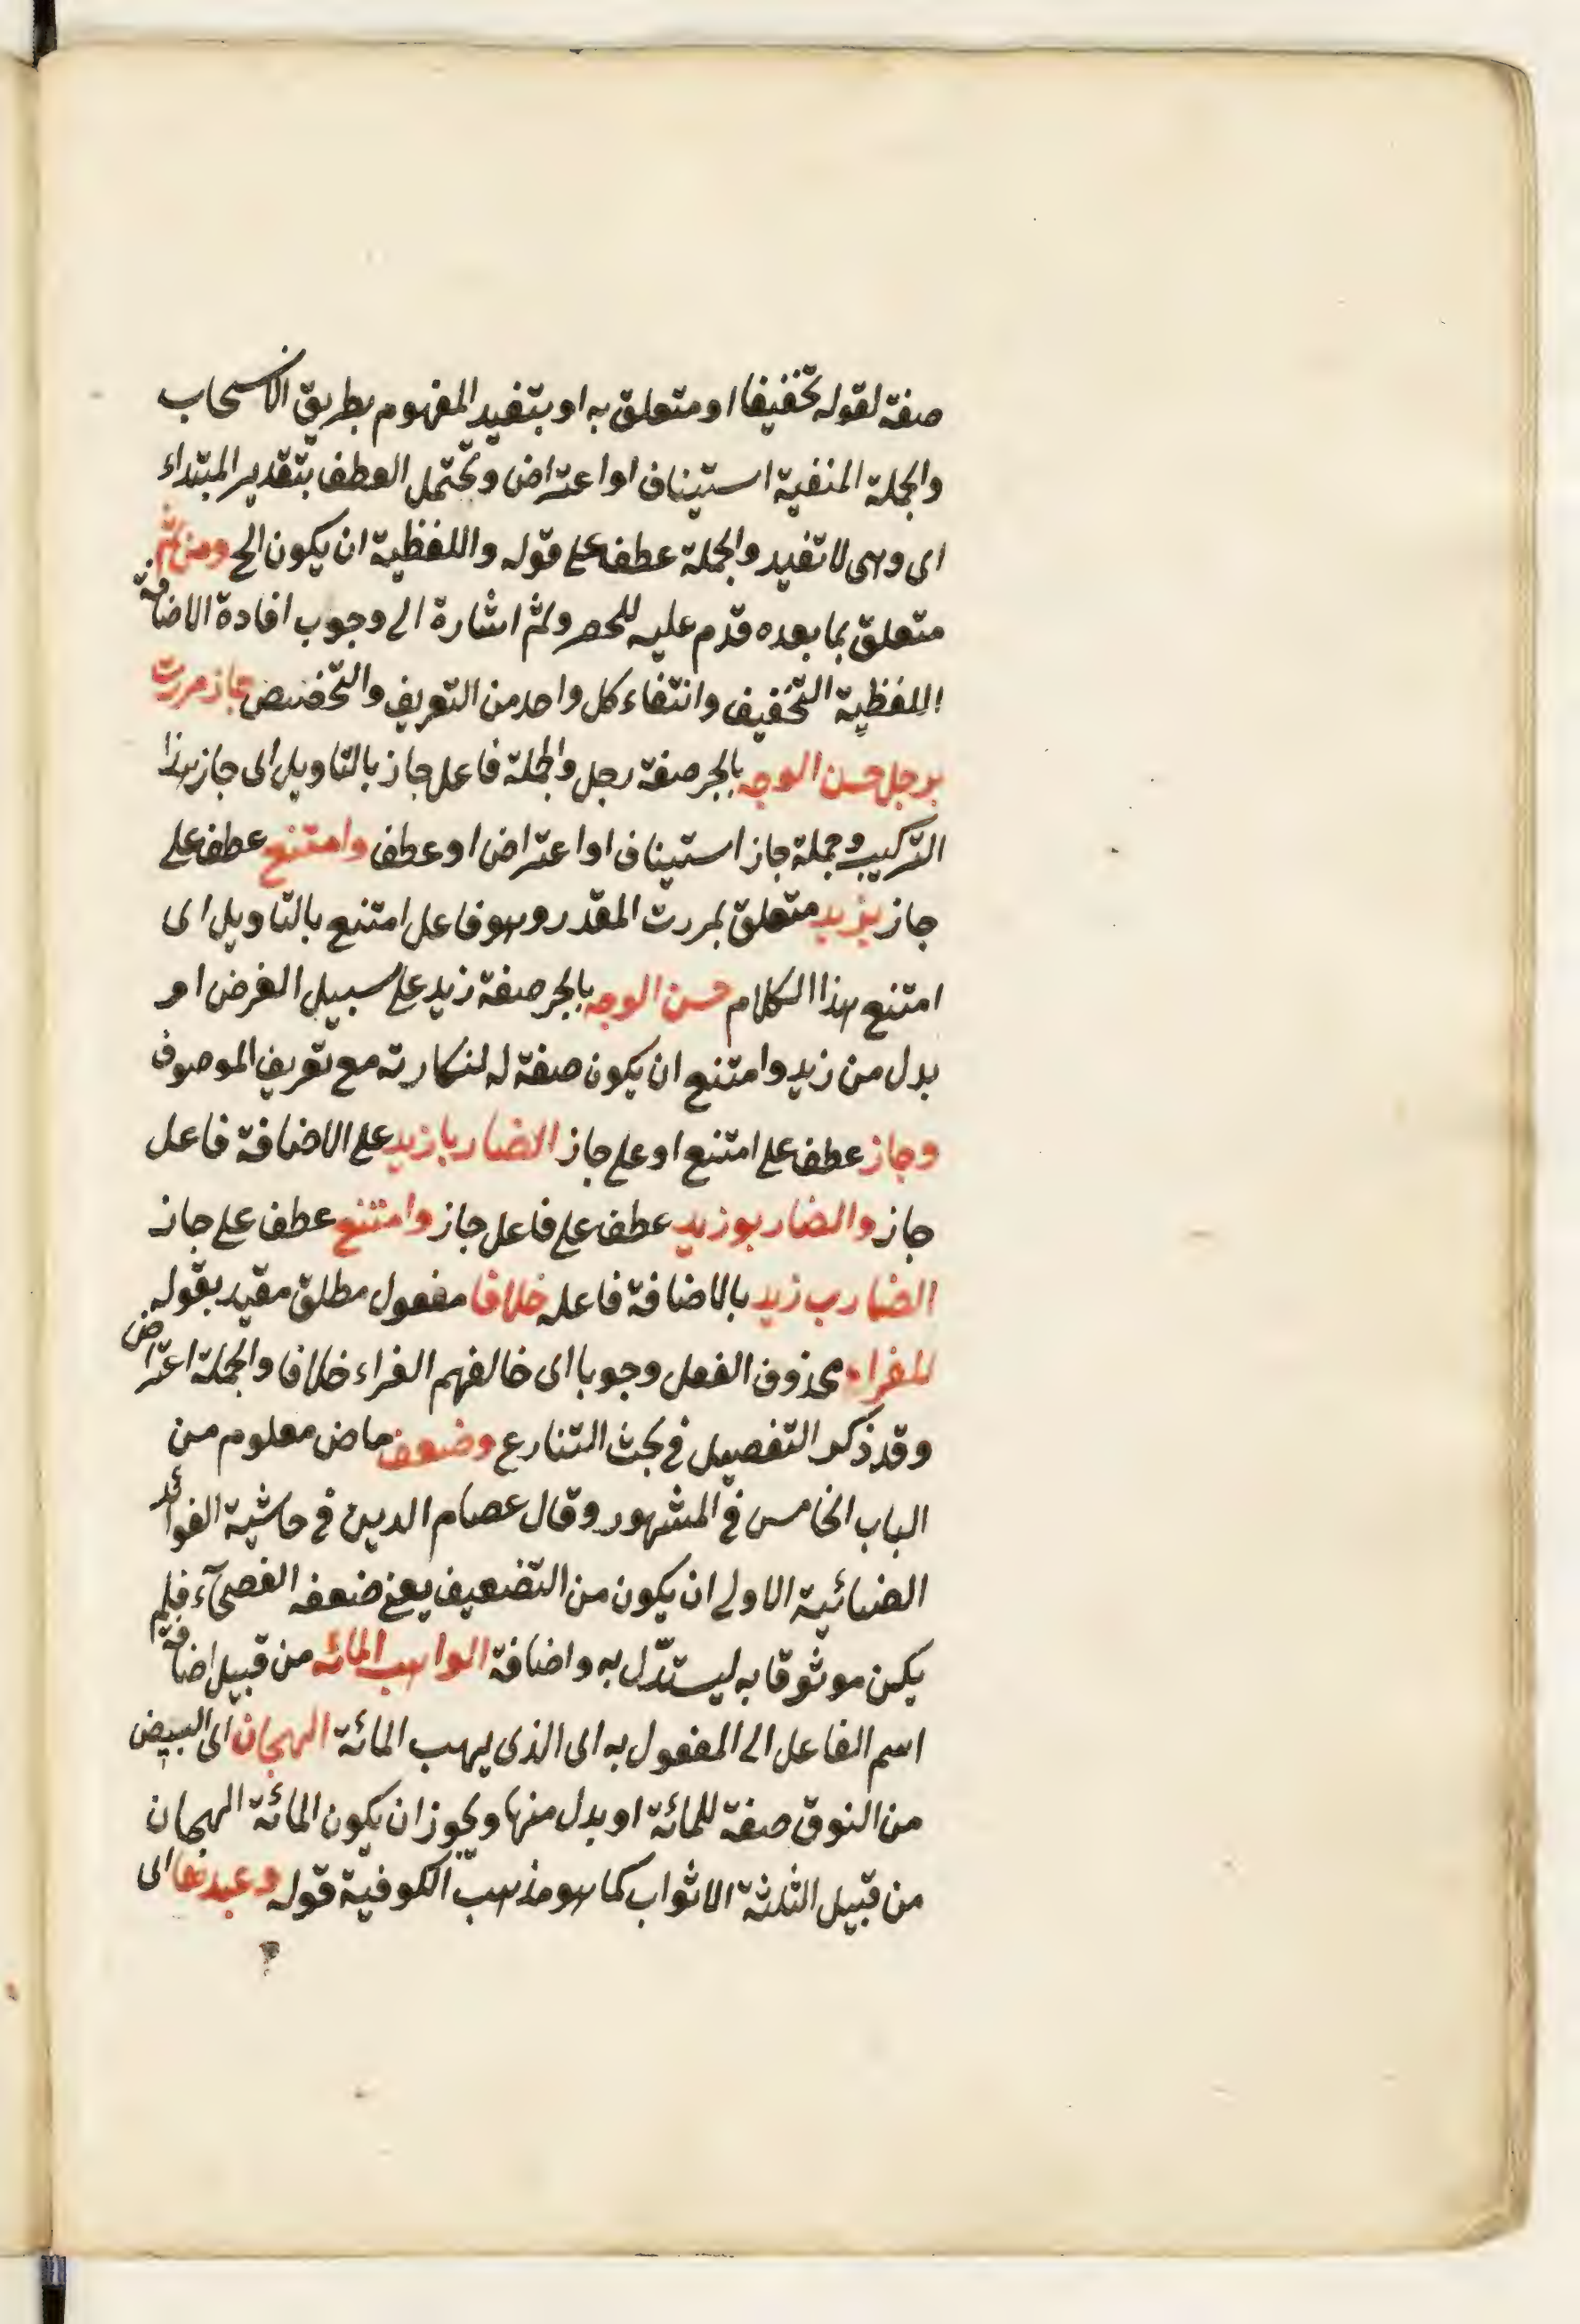 صفة لقوله تخفيفا او متعلق به او بتفيد المفهوم بطريق الانسحاب
والجملة المنفية استيناف او اعتراض وتحتمل العطف بتقدير المبتداء
اى وهى لا تفيد والجملة عطف على قوله واللفظية ان يكون الخ ومن ثم
متعلق بما بعده قدم عليه للحصر وثم اشارة الى وجوب افادة الاضافة
اللفظية التخفيف وانتفاء كل واحد من التعريف والتخصيص جاز مررت
برجل حسن الوجه بالجر صفة رجل والجملة فاعل جاز بالتاويل اى جاز هذا
التركيب وجملة جاز استيناف او اعتراض او عطف وامتنع عطف على
جاز بزيد متعلق بمررت المقدر وهو فاعل امتنع بالتاويل اى
امتنع هذا الكلام حسن الوجه بالجر صفة زيد على سبيل الفرض او
بدل من زيد وامتنع ان يكون صفة له لنكارته مع تعريف الموصوف
وجاز عطف على امتنع او على جاز الضاربا زيد على الاضافة فاعل
جاز والضاربو زيد عطف على فاعل جاز وامتنع عطف على جاز
الضارب زيد بالاضافة فاعله خلافا مفعول مطلق مقيد بقوله
للفراء محذوف الفعل وجوبا اى خالفهم الفراء خلافا والجملة اعتراض
وقد ذكر التفصيل فى بحث التنازع وضعف ماض معلوم من
الباب الخامس فى المشهور وقال عصام الدين فى حاشية الفوائد
الضيائية الاولى ان يكون من التضعيف يعنى ضعفه الفصحآء فلم
يكن موثوقا به ليستدل به واضافة الواهب المائة من قبيل اضافة
اسم الفاعل الى المفعول به اى الذى يهب المائة الهجان اى البيض
من النوق صفة للمائة او بدل منها ويجوز ان يكون المائة الهجان
من قبيل الثلثة الاثواب كما هو مذهب الكوفية قوله وعبدها اى